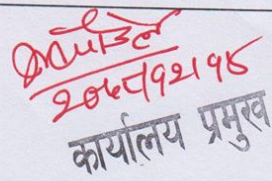 २०७८।१२।१४
कार्यालय प्रमुख